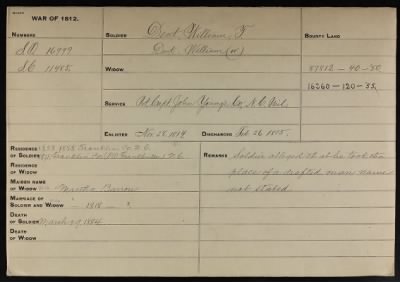 WAR OF 1812.
NUMBERS
S.O. 16999
S.C. 11485
SOLDIER
Dent, William, F.
Dent, William (or)
WIDOW
SERVICE
Capt. John Young's Co., N.C. Mil.
ENLISTED Nov. 28, 1814 DISCHARGED Feb. 26 1815.
BOUNTY LAND
57412-40-50
16260-120-55
RESIDENCE OF SOLDIER 1853, 1855 Franklin Co. N.C.
1871 Franklin Co. N.C.
RESIDENCE OF WIDOW
MAIDEN NAME OF WIDOW
MARRIAGE OF SOLDIER AND WIDOW - 1818 -
DEATH OF SOLDIER March 29, 1884
DEATH OF WIDOW
REMARKS Soldier alleged that he took the
place of a drafted man name
not stated